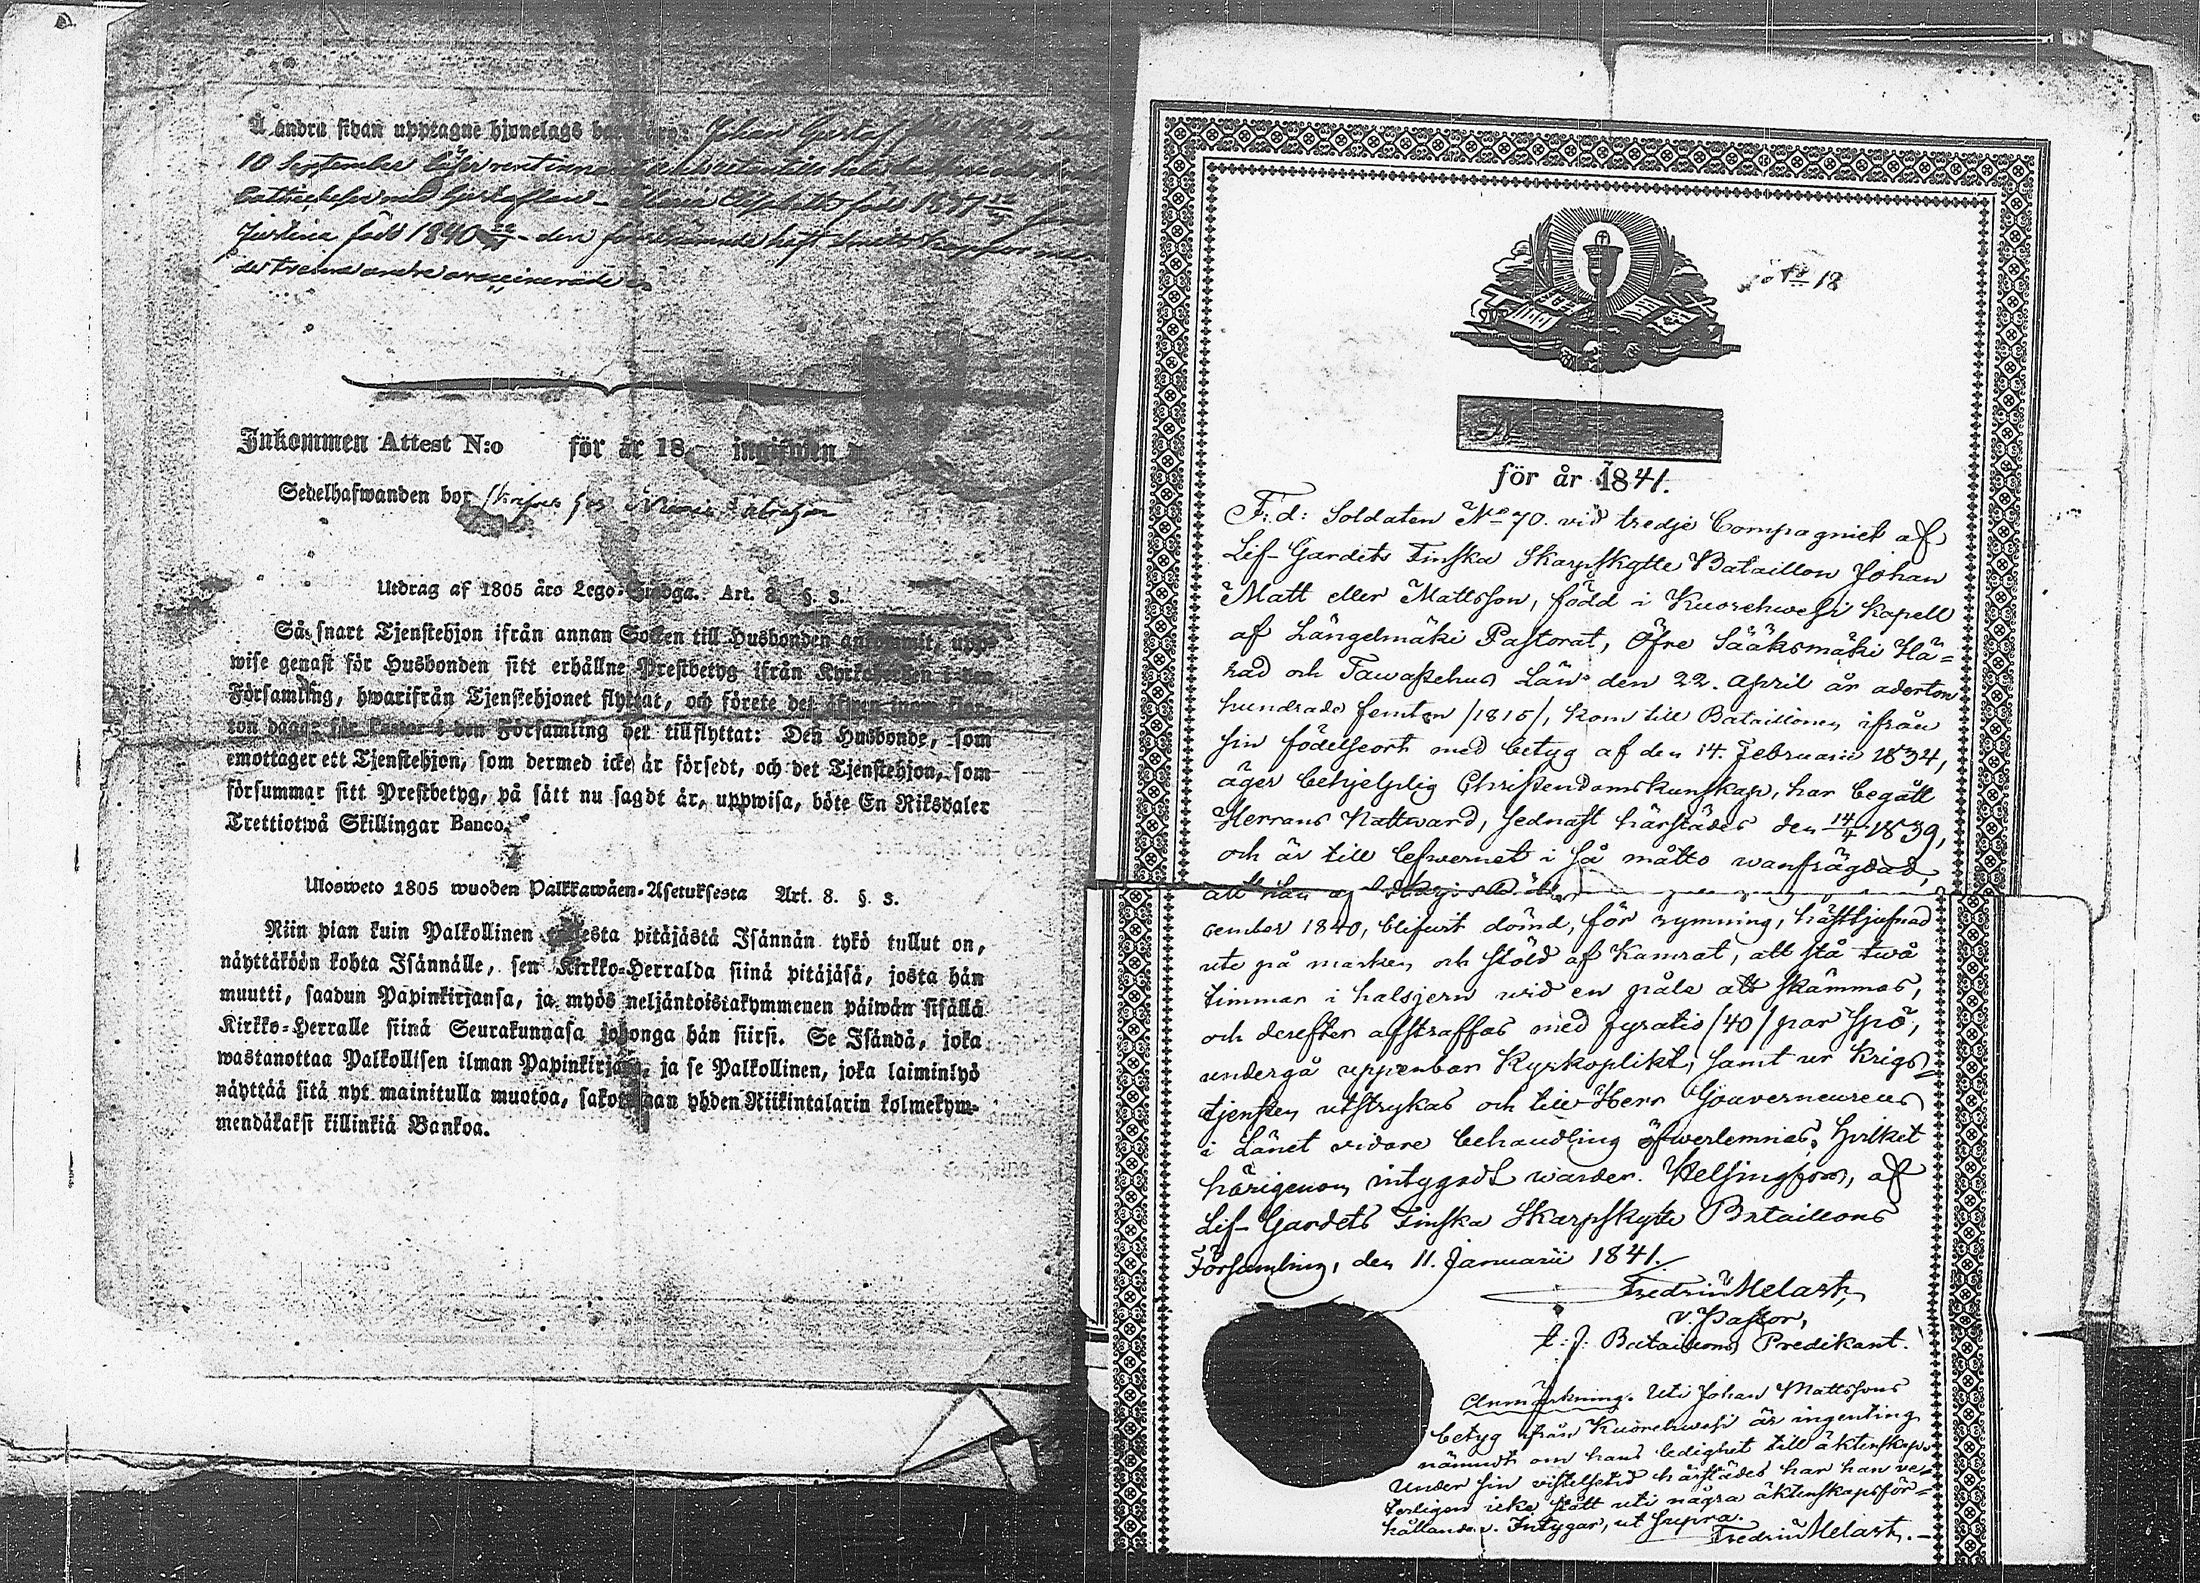 Å andra sidan upptagne hjonelags barn äro: Johan Gustaf
10 September
Maria Elisabeth född 1837
född 1840 - den
andre vaccinerade
Inkommen Attest N:o för år 18 ingifwen
Sedelhafwanden bor
Utdrag af 1805 års Lego-Stadga. Art. 8. §. 3.
Så snart Tjenstehjon ifrån annan Socken till Husbonden ankommit, upp-
wise genast för Husbonden sitt erhållne Prestbetyg ifrån Kyrkoherden i den
Församling, hwarifrån Tjenstehjonet flyttat, och förete det äfwen inom fjor-
ton dagar för Pastor i den Församling det tillflyttat: Den Husbonde, som
emottager ett Tjenstehjon, som dermed icke är försedt, och det Tjenstehjon, som
försummar sitt Prestbetyg, på sätt nu sagdt är, uppwisa, böte En Riksdaler
Trettiotwå Skillingar Banco.
Ulosweto 1805 wuoden Palkkawäen-Asetuksesta Art. 8. §. 3.
Niin pian kuin Palkollinen toisesta pitäjästä Isännän tykö tullut on,
näyttäköön kohta Isännälle, sen Kirkko-Herralda siinä pitäjäsä, josta hän
muutti, saadun Papinkirjansa, ja myös neljäntoistakymmenen päiwän sisällä
Kirkko-Herralle siinä Seurakunnasa johonga hän siirsi. Se Isändä, joka
wastanottaa Palkollisen ilman Papinkirjata, ja se Palkollinen, joka laiminlyö
näyttää sitä nyt mainitulla muotoa, sakoitetaan yhden Riikintalarin kolmekym-
mendäkaksi killinkiä Bankoa.
N:o 18
för år 1841.
F.d: Soldaten No 70. vid tredje Compagniet af
Lif-Gardets Finska Skarpskytte Bataillon Johan
Matt eller Mattsson, född i Kuorehwesi Kapell
af Längelmäki Pastorat, Öfre Sääksmäki Hä-
rad och Tawastehus Län den 22. April år aderton
hundrade femton /1815/, kom till Bataillonen ifrån
sin födelseort med betyg af den 14. Februarii 1834,
äger behjelplig Christendomskunskap, har begått
Herrans Nattward, sednast härstädes den 14/4 1839,
och är till lefwernet i så måtto wanfrägdad,
att han
cember 1840, blifwit dömd, för rymning, häststjufnad
ute på marken och stöld af Kamrat, att stå twå
timmar i halsjern wid en påle att skämmas,
och derefter afstraffas med fyratio /40/ par spö,
undergå uppenbar Kyrkoplikt, samt ur Krigs-
tjensten utstrykas och till Herr Gouverneurens
i Länet vidare behandling öfwerlemnas; hvilket
härigenom intygadt warder. Helsingfors, af
Lif-Gardets Finska Skarpskytte Bataillons
Församling, den 11. Januarii 1841.
Fredric Melart,
v. Pastor,
t. f. Bataillons Predikant.
Anmärkning. Uti Johan Mattssons
betyg ifrån Kuorehwesi är ingenting
nämndt om hans ledighet till äktenskap.
Under sin vistelsetid härstädes har han ve-
terligen icke stått uti några äktenskapsför-
hållanden. Intygar, ut supra.
Fredric Melart.